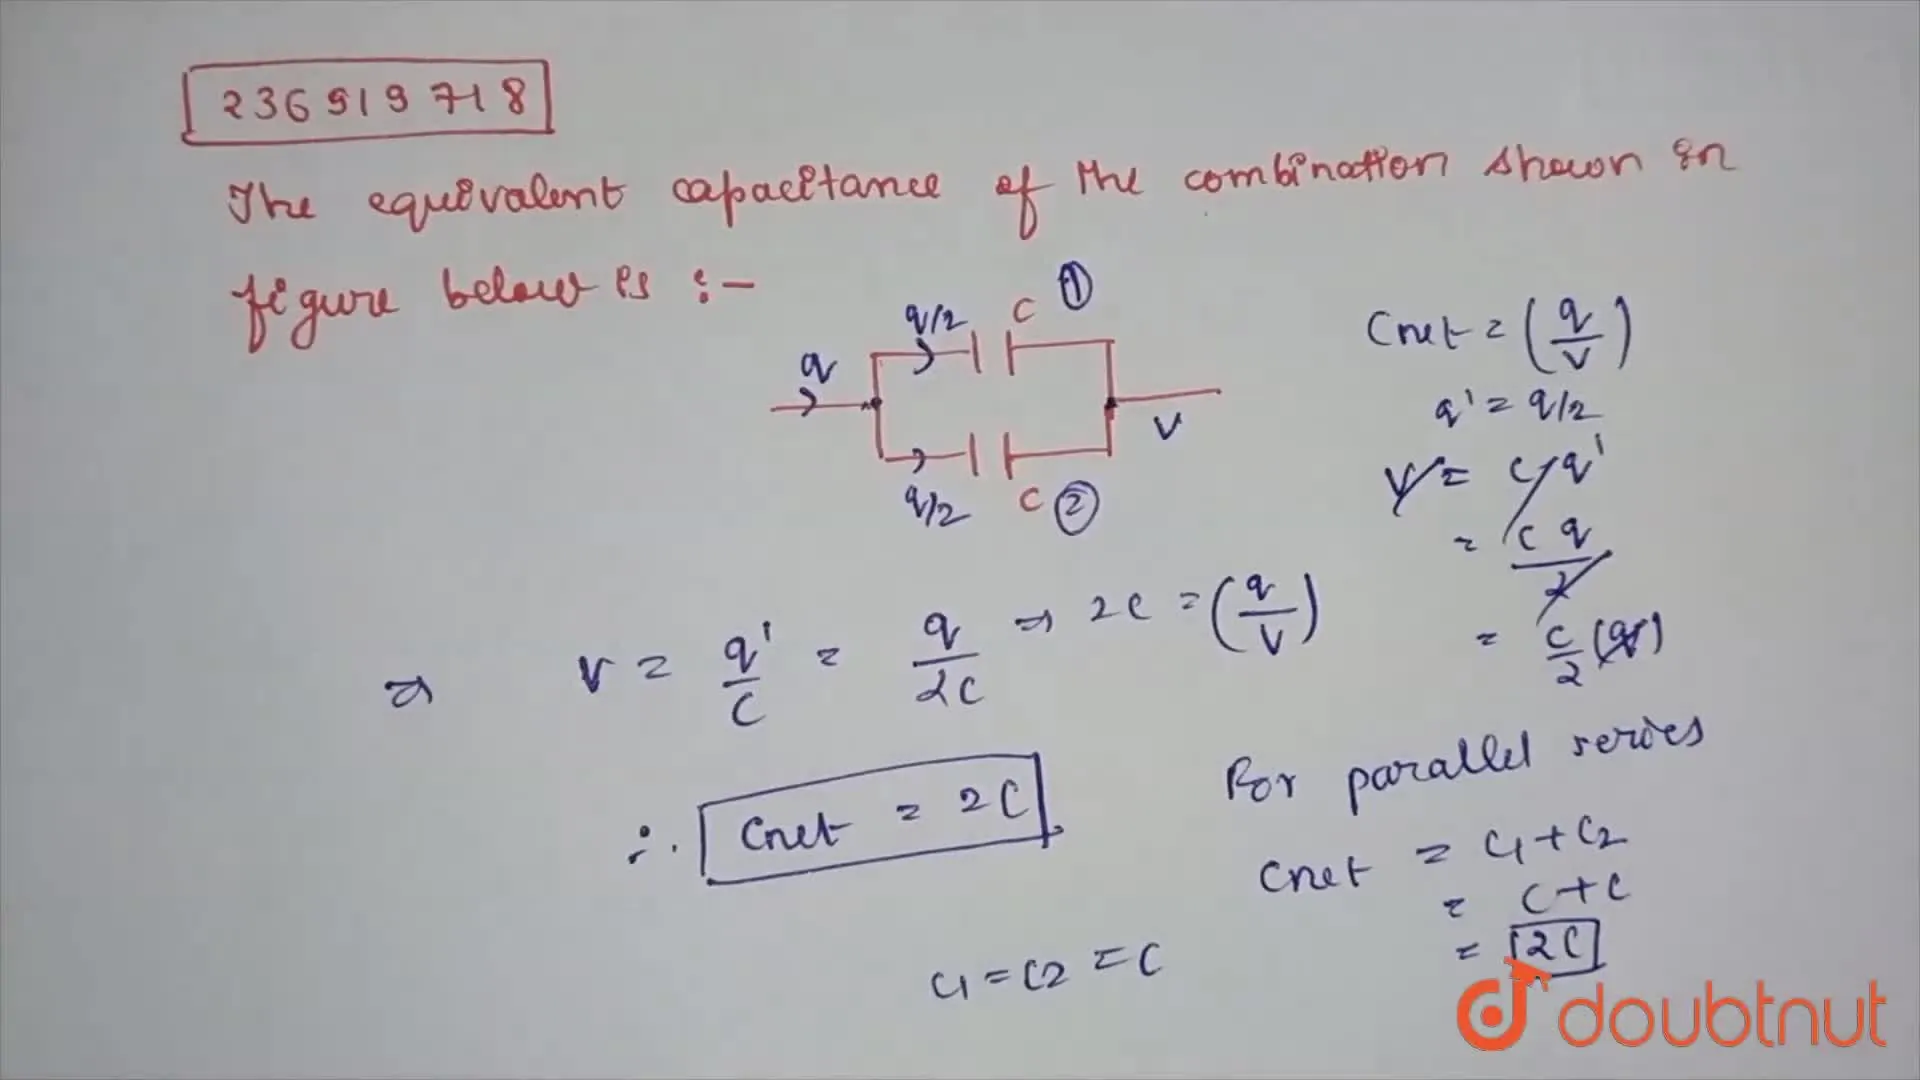 236919718
The equivalent capacitance of the combination shown in
figure below is :-
q
q/2
C
①
q/2
C
②
V
Cnet = (q/V)
q' = q/2
V = C q'
= C q/2
= C/2 (q)
⇒ V = q'/C = q/2C ⇒ 2C = (q/V)
∴ Cnet = 2C
For parallel series
Cnet = C1 + C2
= C + C
= 2C
C1 = C2 = C
doubtnut